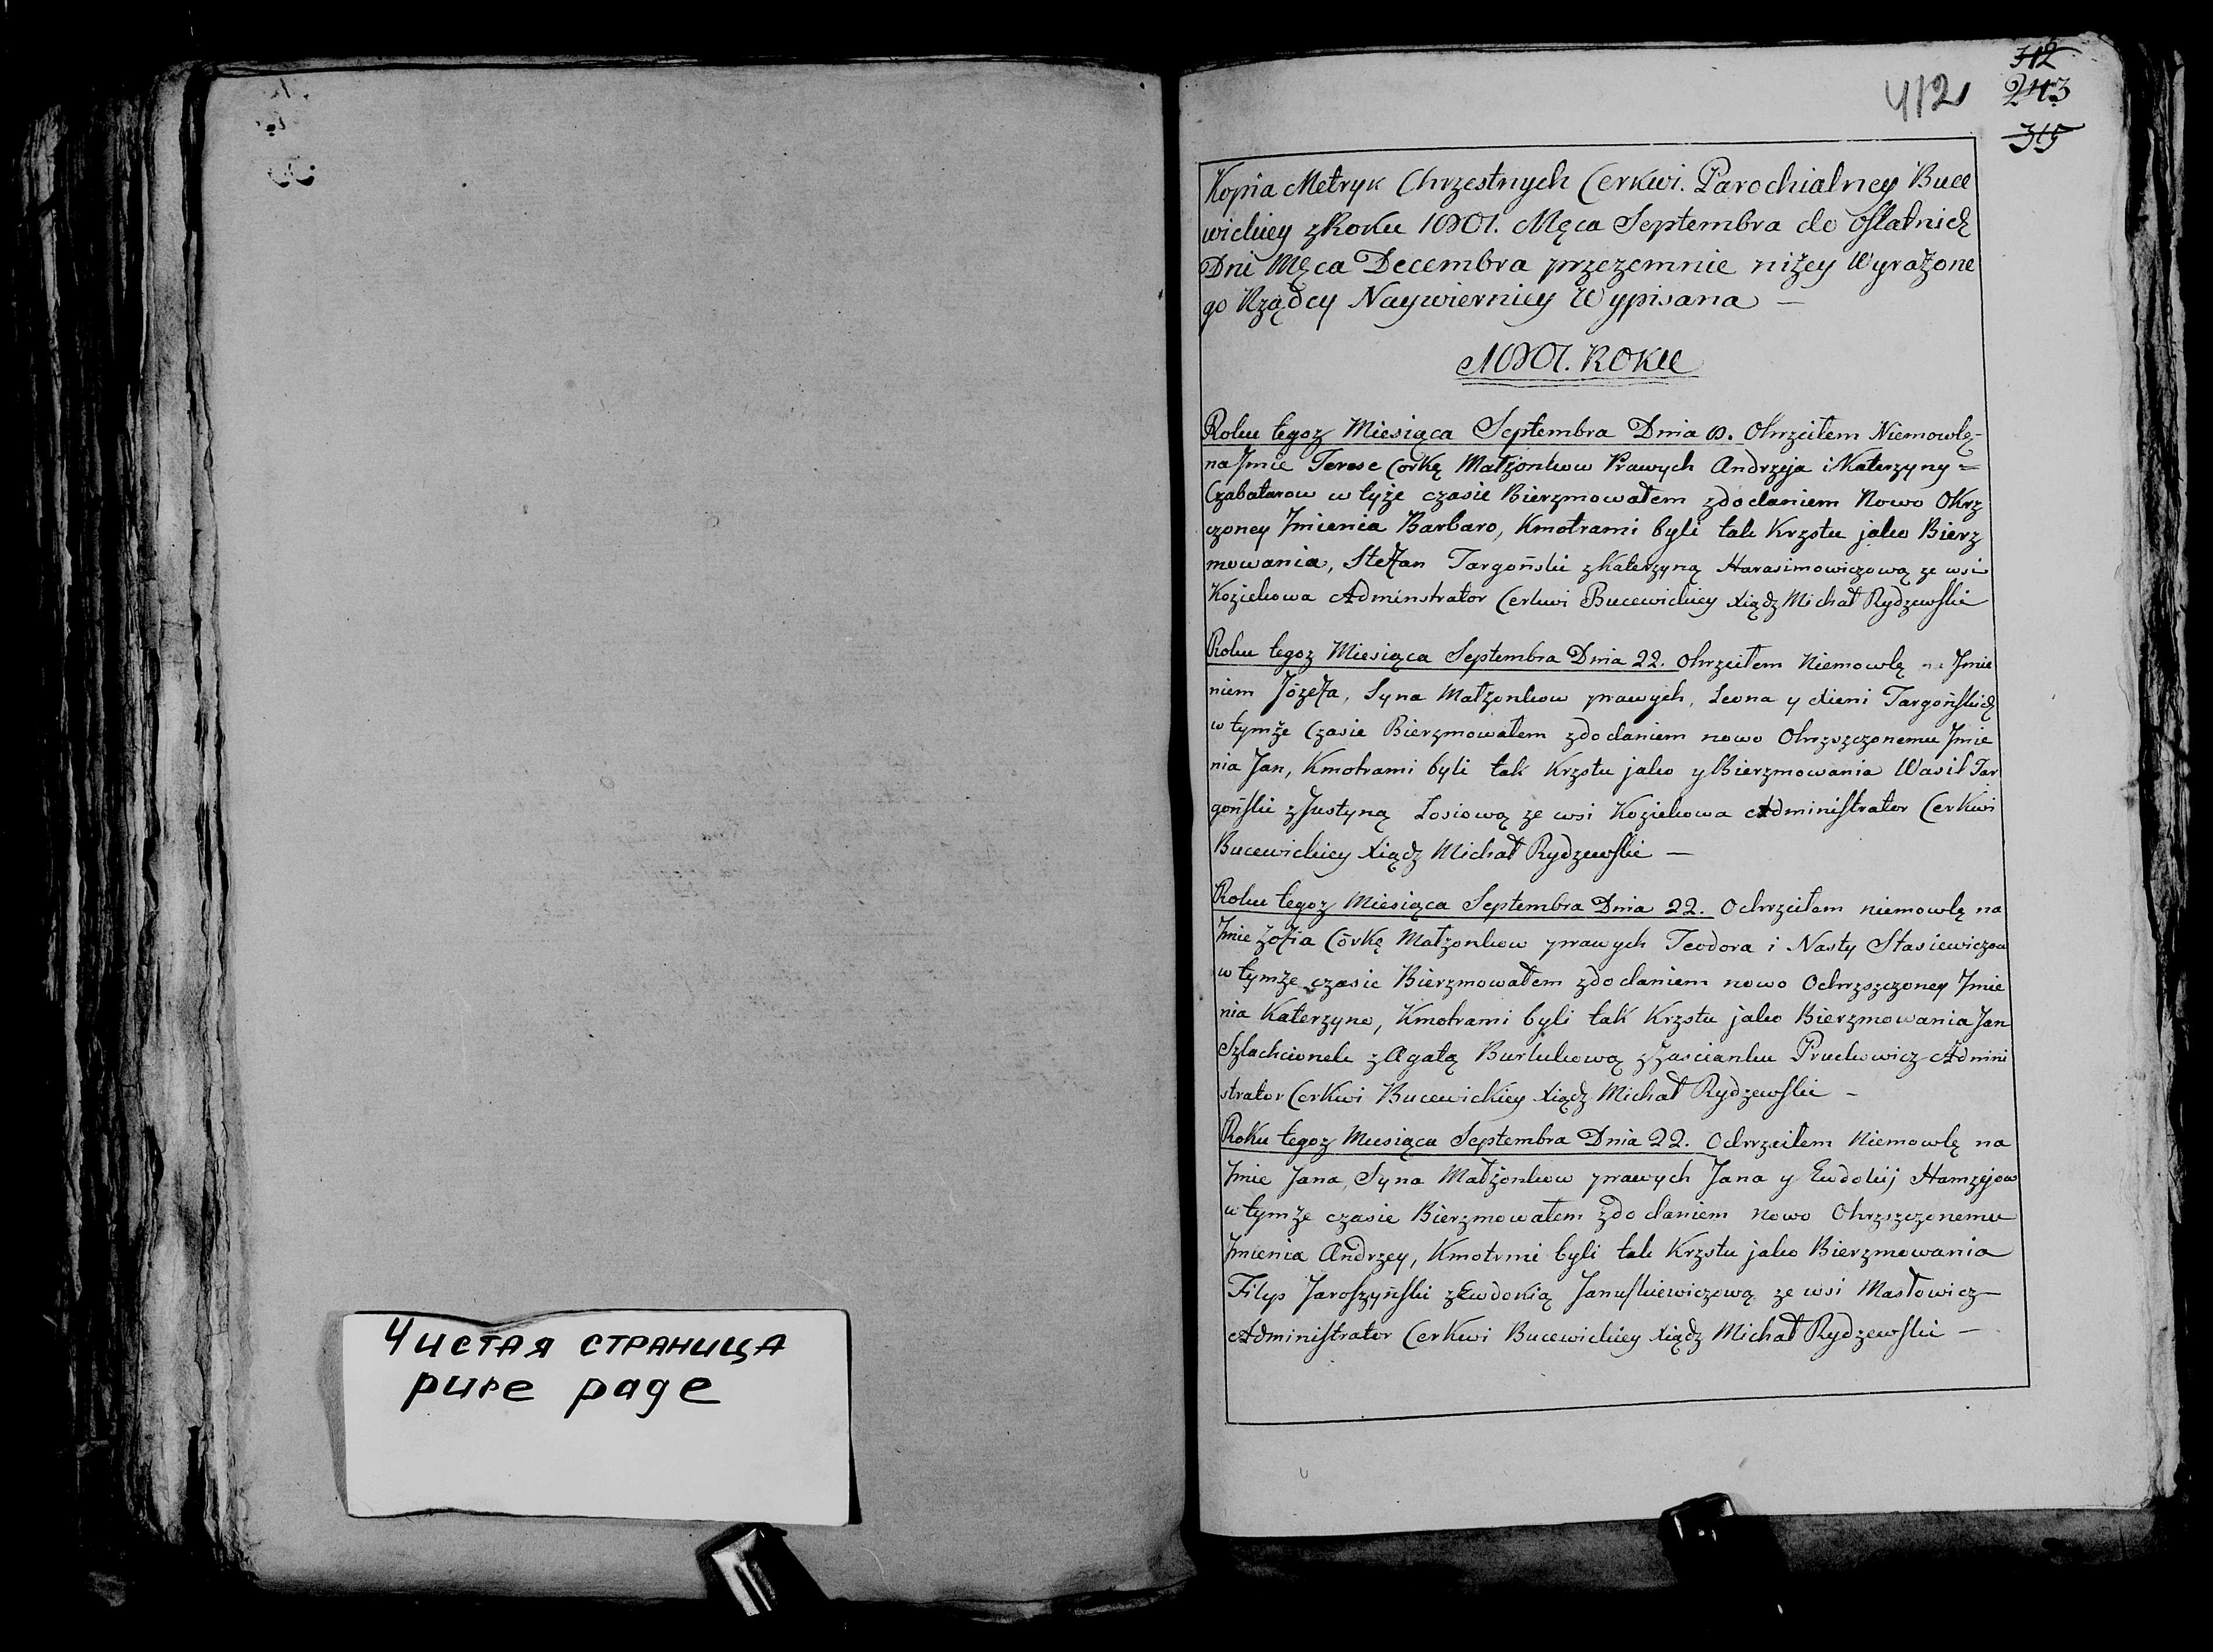 Чистая страница
pure page
412
312
243
315
Kopia Metryk Chrzestnych Cerkwi Parochialney Buce
wickiey z Roku 1801. Męca Septembra do ostatnich
Dni Męca Decembra przezemnie niżey Wyrażone
go Rządcy Naywierniey Wypisana —
1801. Roku
Roku tegoz Miesiąca Septembra Dnia 8. Okrzciłem Niemowlę
na Jmie Terese Corkę Małżonkow Prawych Andrzeja i Katerzyny =
Czabatarow w tyże czasie Bierzmowałem zdodaniem Nowo Okrz
czoney Jmienia Barbaro, Kmotrami byli tak Krzstu jako Bierz
mowania, Stefan Targoński z Katerzyną Harasimowiczową ze wsi
Koziekowa Adminstrator Cerkwi Bucewickiey Xiądz Michał Rydzewski
Roku tegoz Miesiąca Septembra Dnia 22. Okrzciłem Niemowlę na Jmie
niem Józefa, Syna Małzonkow prawych, Leona y Xieni Targońskich
w tymże Czasie Bierzmowałem zdodaniem nowo Okrzszczonemu Jmie
nia Jan, Kmotrami byli tak Krzstu jako y Bierzmowania Wasil Tar
goński z Justyną Losiową ze wsi Koziekowa Administrator Cerkwi
Bucewickiey Xiądz Michał Rydzewski —
Roku tegoz Miesiąca Septembra Dnia 22. Ochrzciłem niemowlę na
Jmie Zofia Córkę Małzonkow prawych Teodora i Nasty Stasiewiczow
w tymże czasie Bierzmowałem zdodaniem nowo Ochrzszczoney Jmie
nia Katerzyno, Kmotrami byli tak Krzstu jako Bierzmowania Jan
Szlachcionek z Agatą Burlukową z Zascianku Pruchowicz Admini
strator Cerkwi Bucewickiey Xiądz Michał Rydzewski –
Roku tegoz Miesiąca Septembra Dnia 22. Ochrzciłem Niemowlę na
Jmie Jana, Syna Małżonkow prawych Jana y Ewdokij Hamzejow
w tymże czasie Bierzmowałem zdodaniem nowo Okrzszczonemu
Jmienia Andrzey, Kmotrmi byli tak Krzstu jako Bierzmowania
Filip Jaroszyński z Ewdokią Januskiewiczową ze wsi Masłowicz —
Administrator Cerkwi Bucewickiey Xiądz Michał Rydzewski —